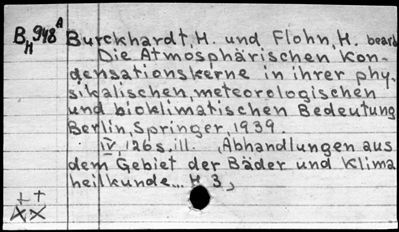 B,H 948 A Burckhardt, H. und Flohn, H. bearb
Die Atmosphärischen Kon-
densationskerne in ihrer phy-
sikalischen, meteorologischen
und bioklimatischen Bedeutung
Berlin, Springer, 1939.
IV, 126 s. ill. (Abhandlungen aus
dem Gebiet der Bäder und Klima
heilkunde... H 3)